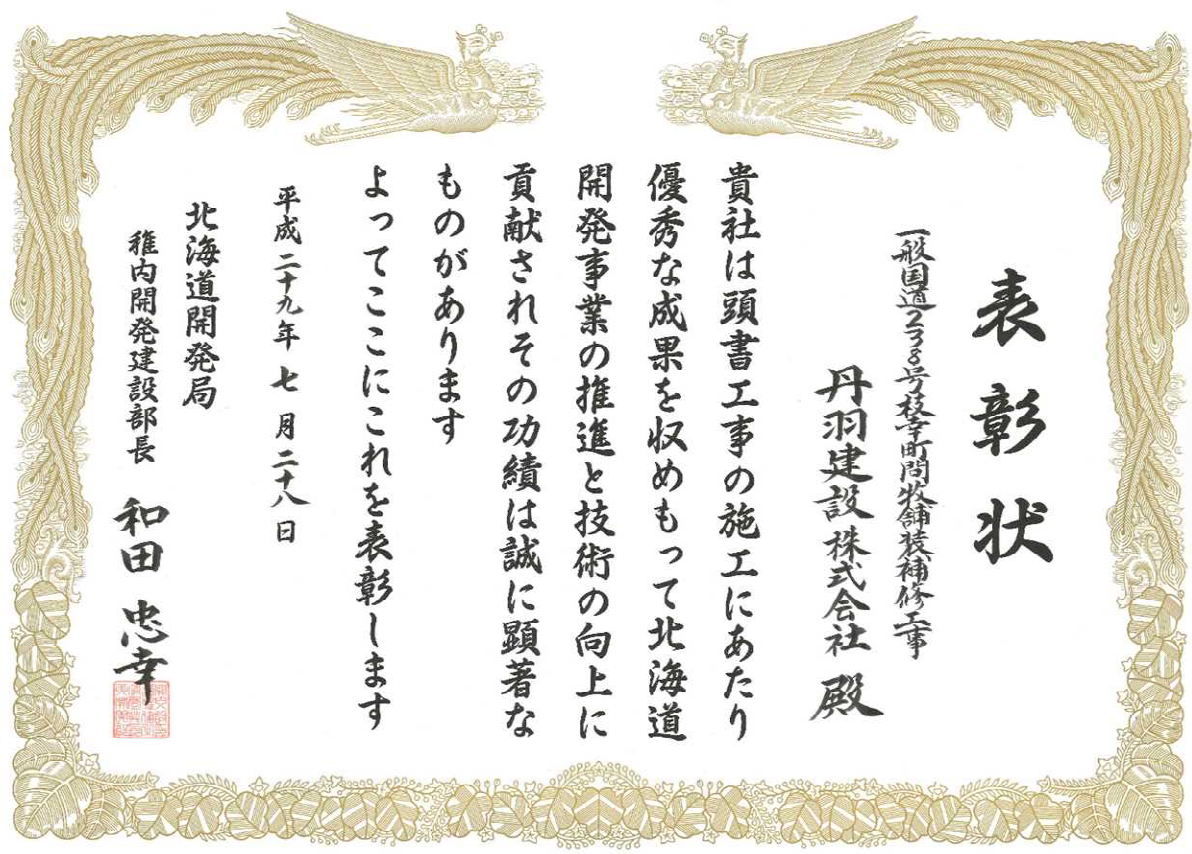 表彰状
一般国道238号枝幸町問牧舗装補修工事
丹羽建設株式会社 殿
貴社は頭書工事の施工にあたり
優秀な成果を収めもって北海道
開発事業の推進と技術の向上に
貢献されその功績は誠に顕著な
ものがあります
よってここにこれを表彰します
平成二十九年七月二十八日
北海道開発局
稚内開発建設部長 和田忠幸